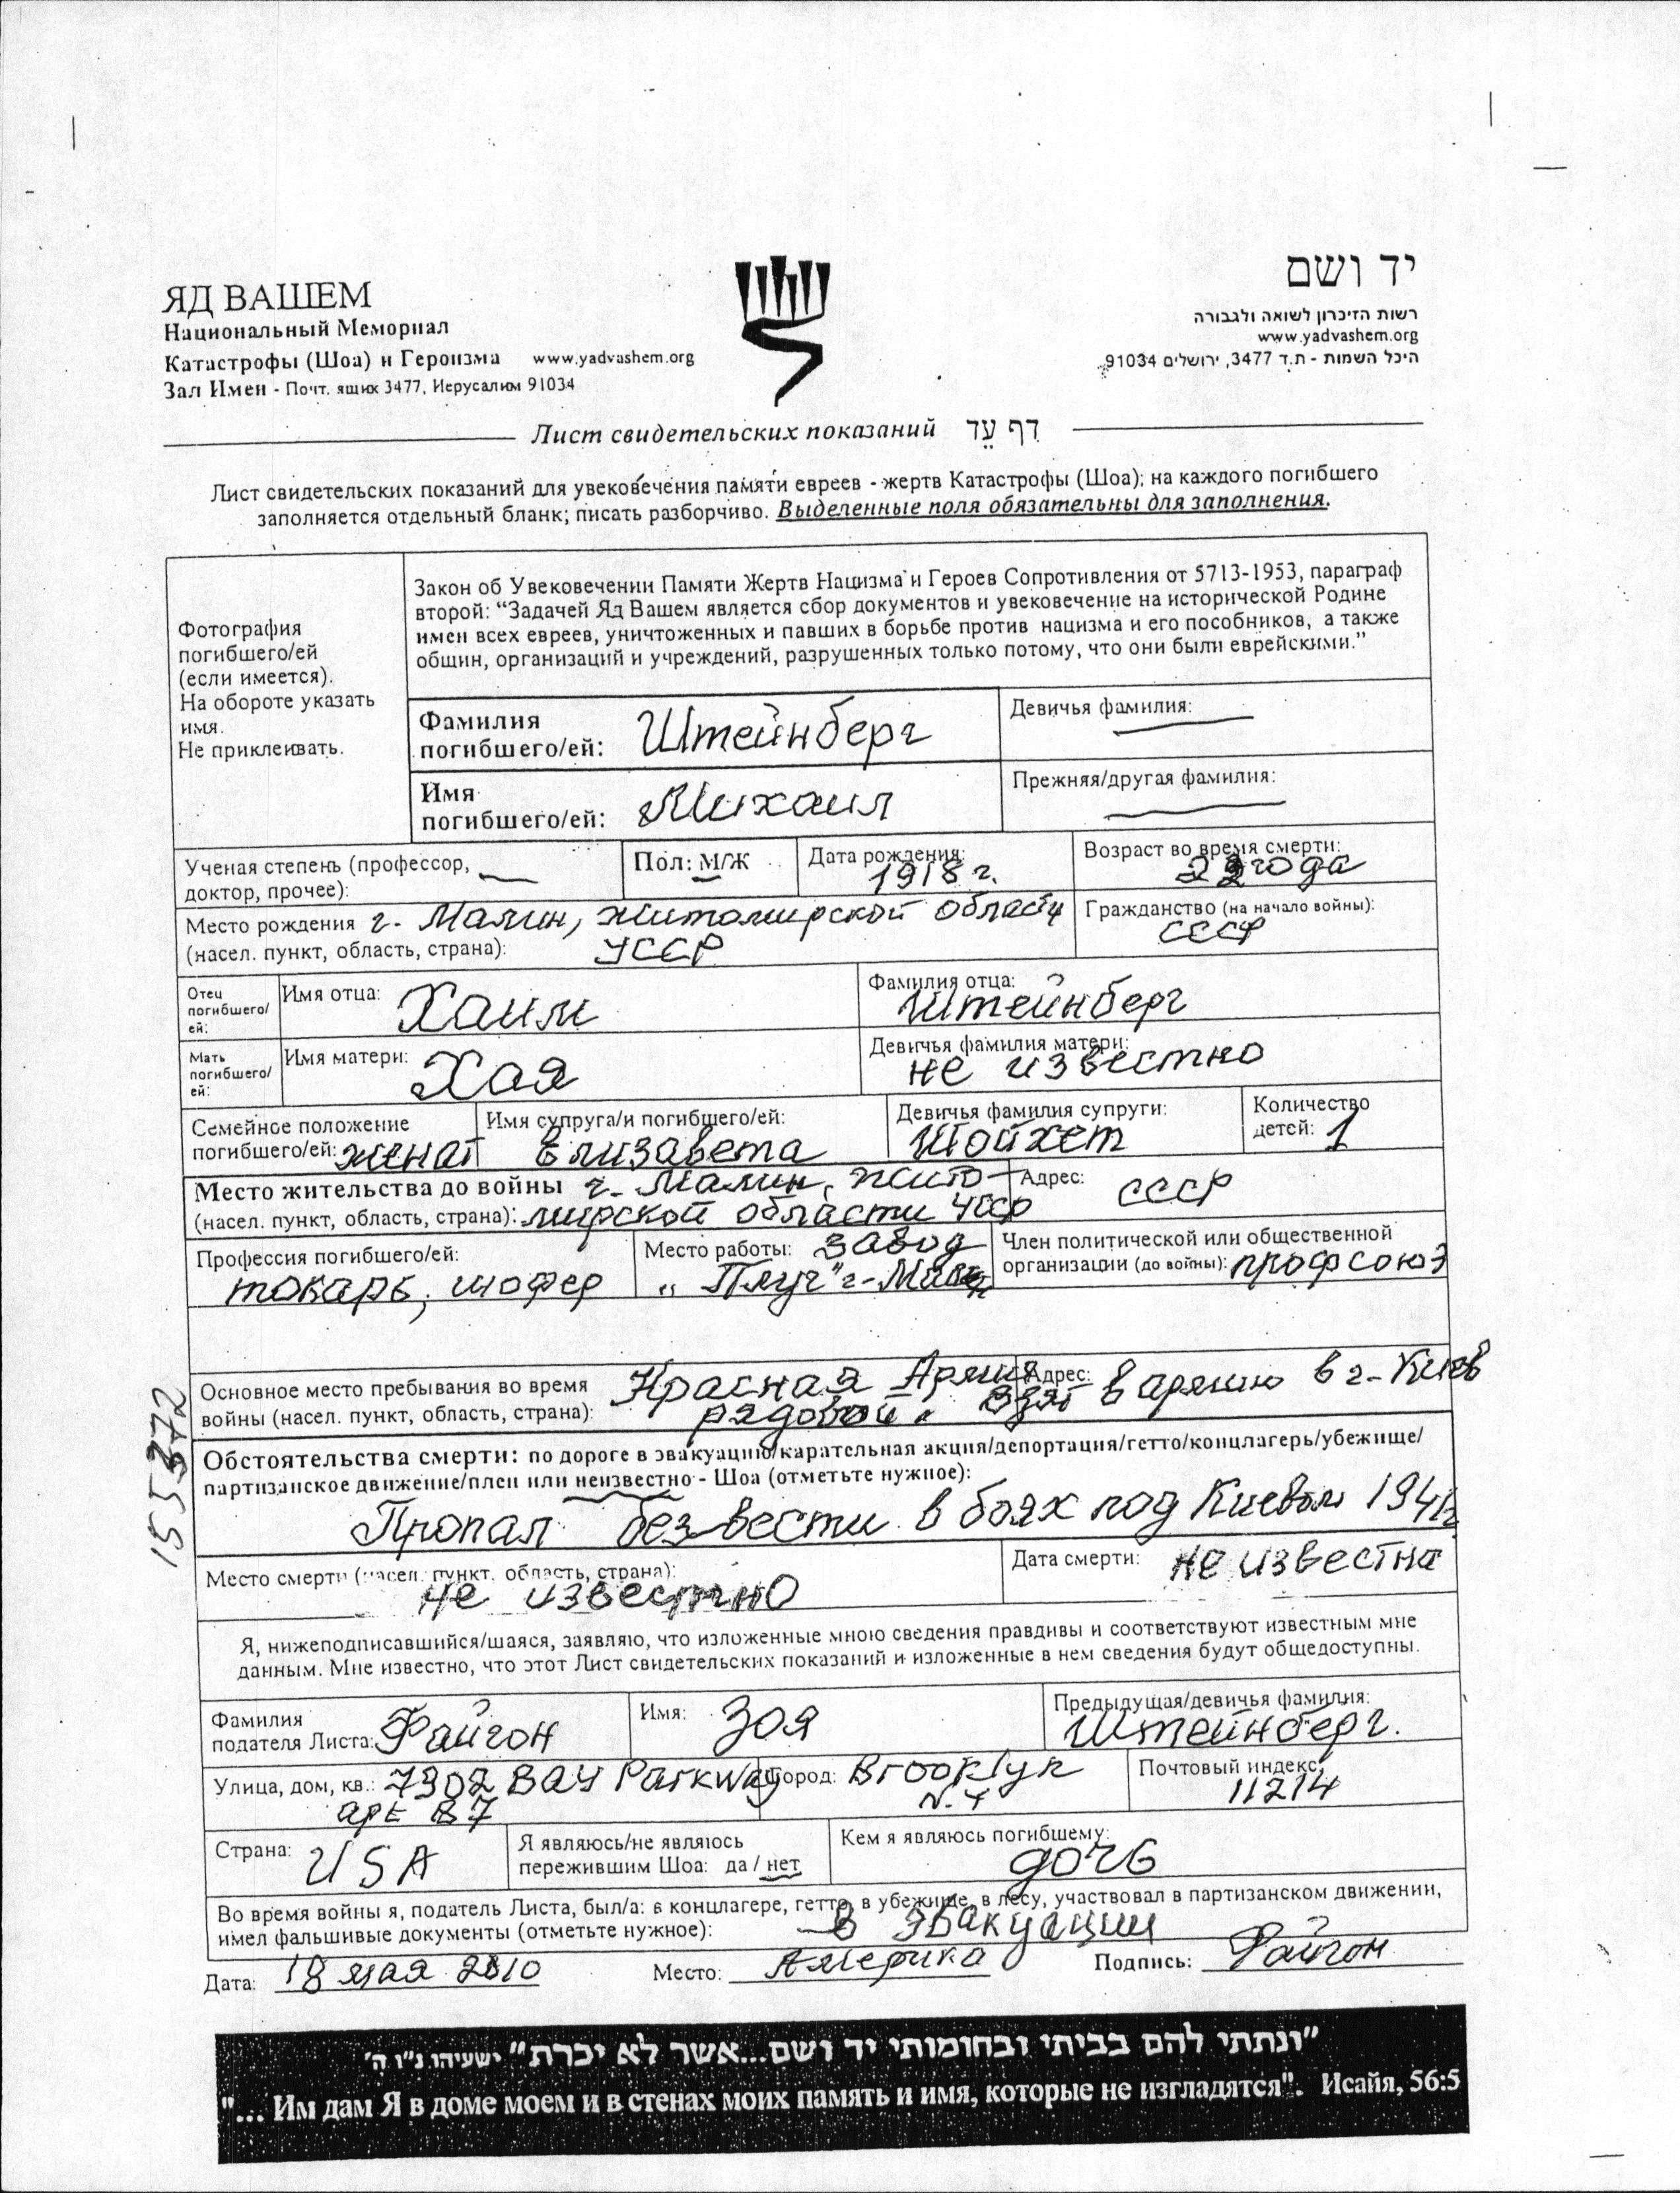 ЯД ВАШЕМ
Национальный Мемориал
Катастрофы (Шоа) и Героизма www.yadvashem.org
Зал Имен - Почт. ящик 3477, Иерусалим 91034
יד ושם
רשות הזיכרון לשואה ולגבורה
www.yadvashem.org
היכל השמות - ת.ד 3477, ירושלים 91034
Лист свидетельских показаний דף עד
Лист свидетельских показаний для увековечения памяти евреев - жертв Катастрофы (Шоа); на каждого погибшего
заполняется отдельный бланк; писать разборчиво. Выделенные поля обязательны для заполнения.
Фотография
погибшего/ей
(если имеется).
На обороте указать
имя.
Не приклеивать.
Закон об Увековечении Памяти Жертв Нацизма и Героев Сопротивления от 5713-1953, параграф
второй: “Задачей Яд Вашем является сбор документов и увековечение на исторической Родине
имен всех евреев, уничтоженных и павших в борьбе против нацизма и его пособников, а также
общин, организаций и учреждений, разрушенных только потому, что они были еврейскими.”
Фамилия
погибшего/ей: Штейнберг
Девичья фамилия:
Имя
погибшего/ей: Михаил
Прежняя/другая фамилия:
Ученая степень (профессор,
доктор, прочее):
Пол: М/Ж
Дата рождения:
1918 г.
Возраст во время смерти:
года
Место рождения г. Малин, житомирской области
(насел. пункт, область, страна): УССР
Гражданство (на начало войны):
СССР
Отец
погибшего/
ей:
Имя отца: Хаим
Фамилия отца:
Штейнберг
Мать
погибшего/
ей:
Имя матери: Хая
Девичья фамилия матери:
не известно
Семейное положение
погибшего/ей: женат
Имя супруга/и погибшего/ей:
Елизавета
Девичья фамилия супруги:
Шойхет
Количество
детей: 1
Место жительства до войны г. Малин, жито-
(насел. пункт, область, страна): мирской области УССР
Адрес: СССР
Профессия погибшего/ей:
токарь, шофер
Место работы: завод
"Плуг" г.
Член политической или общественной
организации (до войны): профсоюз
Основное место пребывания во время
войны (насел. пункт, область, страна):
Красная Армия
рядовой. Взят в армию в г. Киев
Адрес:
Обстоятельства смерти: по дороге в эвакуацию/карательная акция/депортация/гетто/концлагерь/убежище/
партизанское движение/плен или неизвестно - Шоа (отметьте нужное):
Пропал без вести в боях под Киевом 1941г.
Место смерти (насел. пункт, область, страна):
не известно
Дата смерти: не известна
Я, нижеподписавшийся/шаяся, заявляю, что изложенные мною сведения правдивы и соответствуют известным мне
данным. Мне известно, что этот Лист свидетельских показаний и изложенные в нем сведения будут общедоступны.
Фамилия
подателя Листа: Файгон
Имя: Зоя
Предыдущая/девичья фамилия:
Штейнберг.
Улица, дом, кв.: 7302 BAY Parkway
apt B7
Город: Brooklyn
N.Y
Почтовый индекс:
11214
Страна: USA
Я являюсь/не являюсь
пережившим Шоа: да / нет
Кем я являюсь погибшему:
дочь
Во время войны я, податель Листа, был/а: в концлагере, гетто, в убежище, в лесу, участвовал в партизанском движении,
имел фальшивые документы (отметьте нужное): в эвакуации
Дата: 18 мая 2010
Место: Америка
Подпись: Файгон
"ונתתי להם בביתי ובחומותי יד ושם...אשר לא יכרת" ישעיהו נ"ו ה'
"... Им дам Я в доме моем и в стенах моих память и имя, которые не изгладятся". Исайя, 56:5